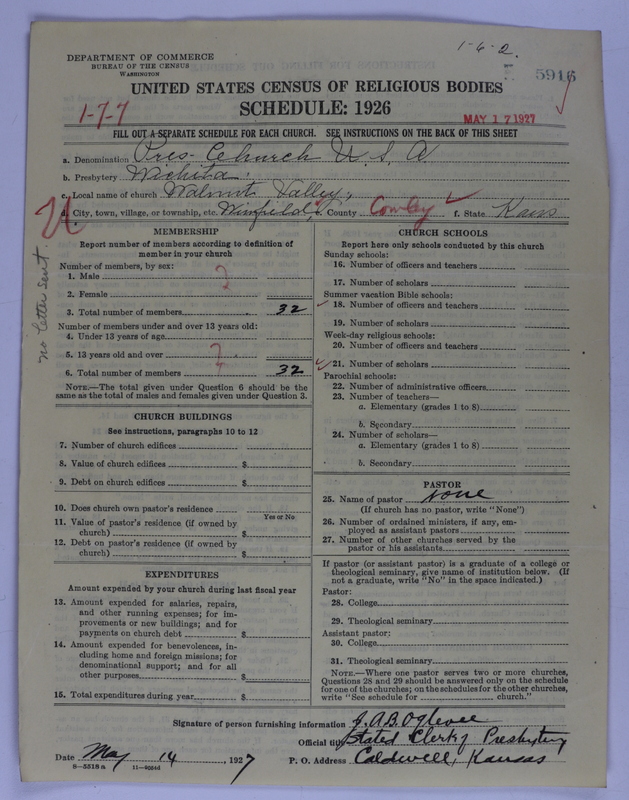 1-6-2.
DEPARTMENT OF COMMERCE
BUREAU OF THE CENSUS
WASHINGTON
5916
UNITED STATES CENSUS OF RELIGIOUS BODIES
SCHEDULE: 1926
1-7-7
MAY 17 1927
FILL OUT A SEPARATE SCHEDULE FOR EACH CHURCH. SEE INSTRUCTIONS ON THE BACK OF THIS SHEET
a. Denomination Pres. Church U. S. A
b. Presbytery Wichita
c. Local name of church Walnut Valley,
d. City, town, village, or township, etc. Winfield, e. County Cowley f. State Kans
no letter sent
MEMBERSHIP
Report number of members according to definition of member in your church
Number of members, by sex:
1. Male ?
2. Female
3. Total number of members 32
Number of members under and over 13 years old:
4. Under 13 years of age
5. 13 years old and over ?
6. Total number of members 32
NOTE.—The total given under Question 6 should be the
same as the total of males and females given under Question 3.
CHURCH BUILDINGS
See instructions, paragraphs 10 to 12
7. Number of church edifices
8. Value of church edifices $
9. Debt on church edifices $
10. Does church own pastor's residence
Yes or No
11. Value of pastor's residence (if owned by
church) $
12. Debt on pastor's residence (if owned by
church) $
EXPENDITURES
Amount expended by your church during last fiscal year
13. Amount expended for salaries, repairs,
and other running expenses; for im-
provements or new buildings; and for
payments on church debt $
14. Amount expended for benevolences, in-
cluding home and foreign missions; for
denominational support; and for all
other purposes $
15. Total expenditures during year $
CHURCH SCHOOLS
Report here only schools conducted by this church
Sunday schools:
16. Number of officers and teachers
17. Number of scholars
Summer vacation Bible schools:
18. Number of officers and teachers
19. Number of scholars
Week-day religious schools:
20. Number of officers and teachers
21. Number of scholars
Parochial schools:
22. Number of administrative officers
23. Number of teachers—
a. Elementary (grades 1 to 8)
b. Secondary
24. Number of scholars—
a. Elementary (grades 1 to 8)
b. Secondary
PASTOR
25. Name of pastor None
(If church has no pastor, write "None")
26. Number of ordained ministers, if any, em-
ployed as assistant pastors
27. Number of other churches served by the
pastor or his assistants
If pastor (or assistant pastor) is a graduate of a college or
theological seminary, give name of institution below. (If
not a graduate, write "No" in the space indicated.)
Pastor:
28. College
29. Theological seminary
Assistant pastor:
30. College
31. Theological seminary
NOTE.—Where one pastor serves two or more churches,
Questions 28 and 29 should be answered only on the schedule
for one of the churches; on the schedules for the other churches,
write "See schedule for church."
Signature of person furnishing information J. A. B. Oglevee
Official title Stated Clerk of Presbytery
Date May 14, 1927 P. O. Address Caldwell, Kansas
8—5518 a